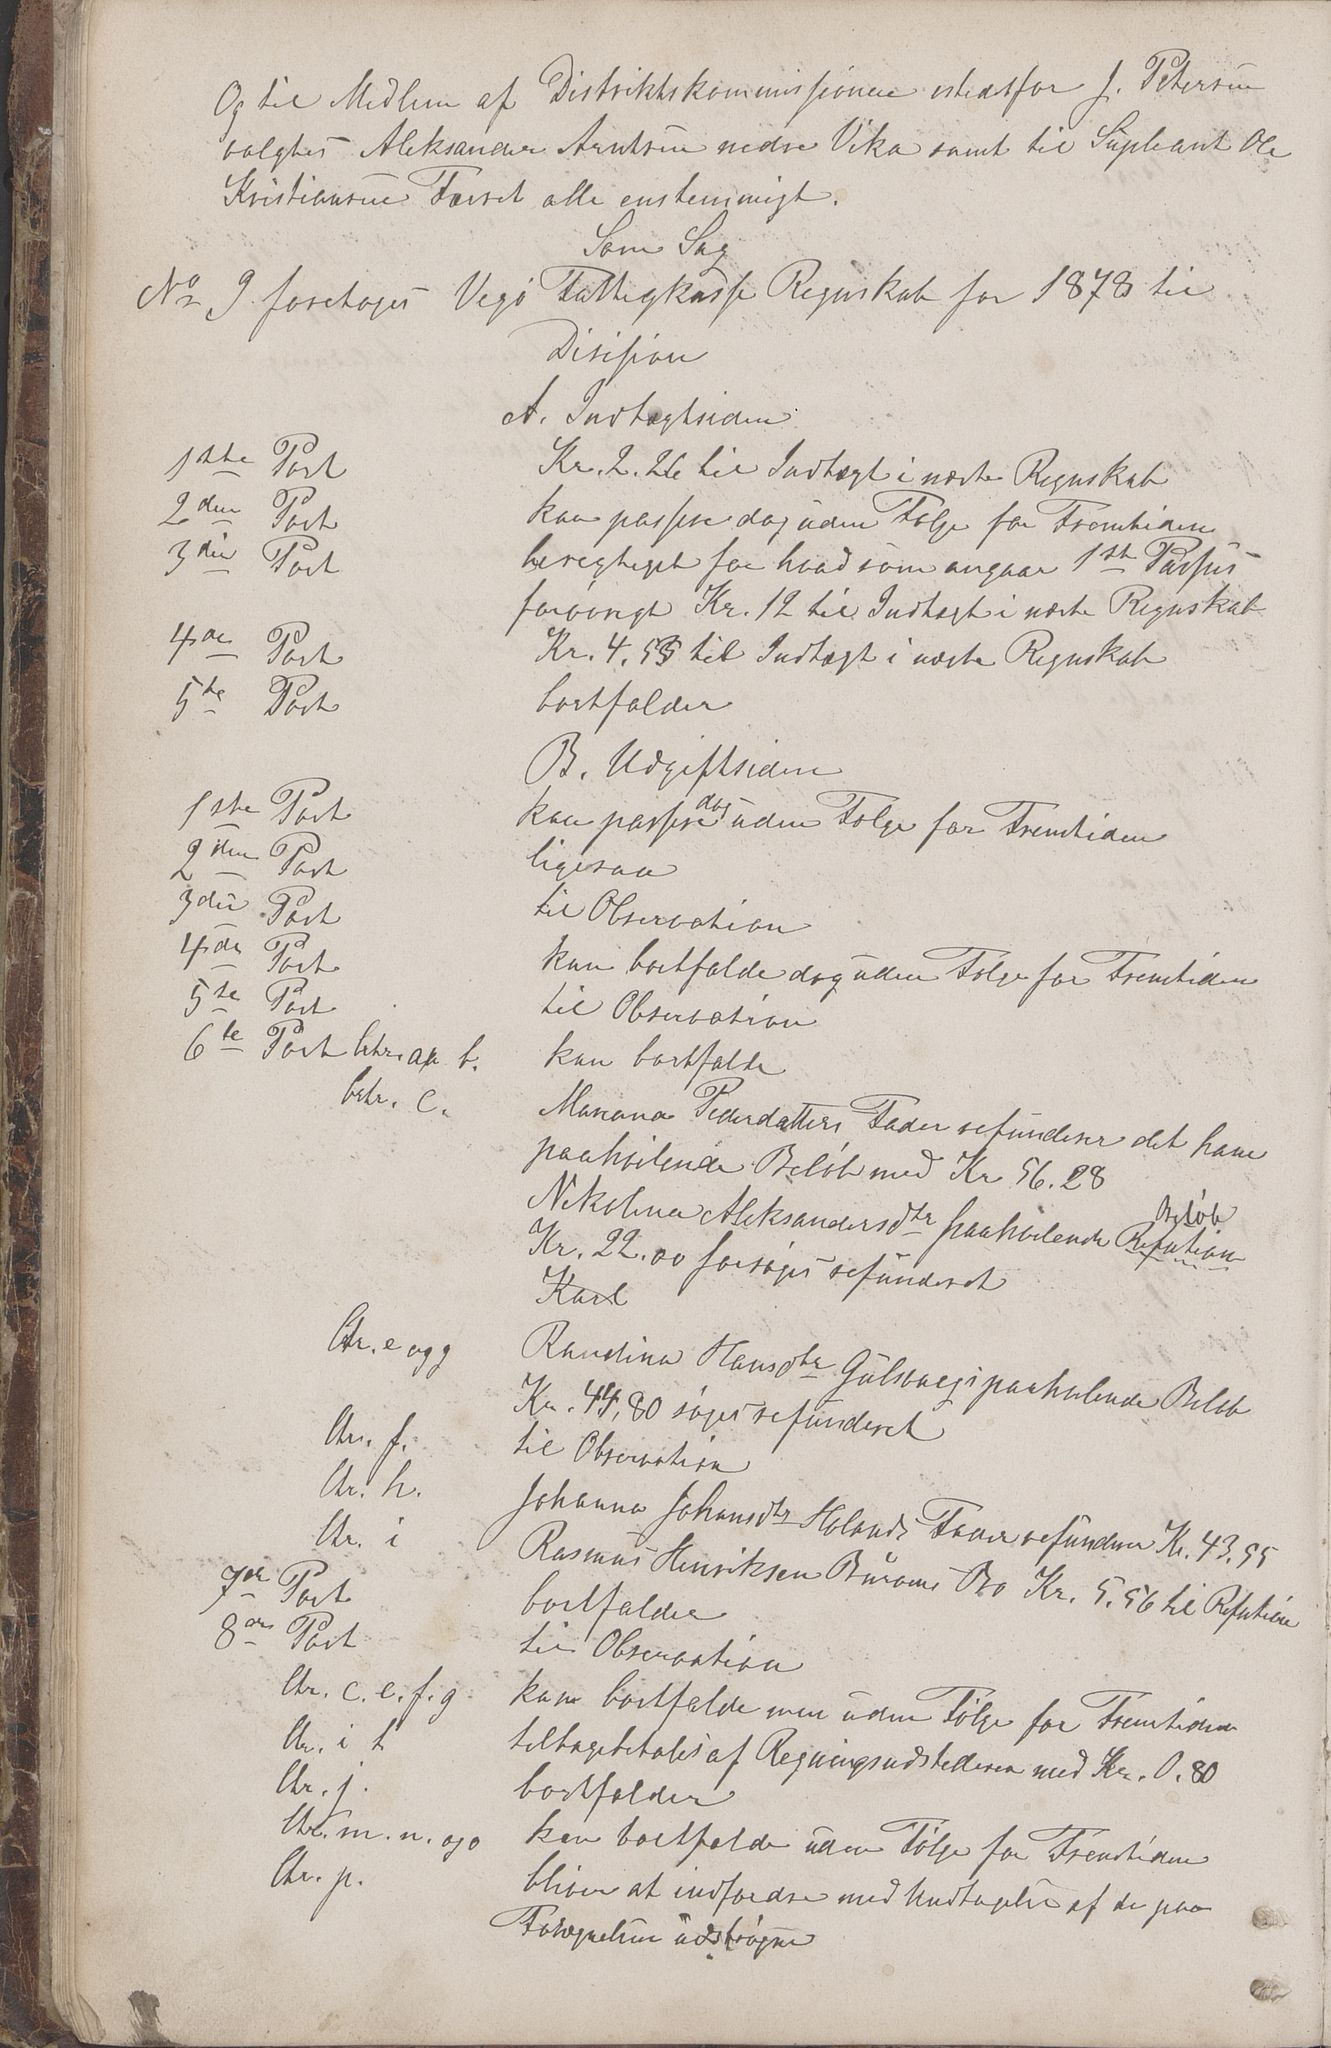 Og til Medlem af Distriktskommissionen istedetfor J. Petersen
valgtes Aleksander Arntsen nedre Vika samt til Supleant Ole
Kristiansen Færset alle enstemmigt.
Som Sag
No 9 foretoges Vegø Fattigkasse Regnskab for 1878 til
Disisjon
A. Indtægtsiden
1ste Post Kr. 2.26 til Indtægt i næste Regnskab
2den Post kan passere dog uden Følge for Fremtiden
3die Post berigtiget for hvad som angaar 1ste Passus
forøvrigt Kr. 12 til Indtægt i næste Regnskab
4de Post Kr. 4.55 til Indtægt i næste Regnskab
5te Post bortfalder
B. Udgiftsiden
1ste Post kan passere dog uden Følge for Fremtiden
2den Post ligesaa
3die Post til Observation
4de Post kan bortfalde dog uden Følge for Fremtiden
5te Post til Observation
6te Post litr. a b. kan bortfalde
litr. c. Mariana Pedersdatters Fader refunderer det ham
paahvilende Beløb med Kr 56.28
Nikolina Aleksandersdtr paahvilende Refution Beløb
Kr. 22.00 forsøges refunderet
Karl
ltr. e og g Randina Hansdtr Gulsvaags paahvilende Beløb
Kr. 44,80 søges refunderet
ltr. f. til Observation
ltr. h. Johanna Johansdtr Holands Fader refunderer Kr. 43.55
ltr. i Rasmus Henriksen Bo Kr. 5.56 til Refution
7de Post bortfalder
8de Post til Observation
ltr. c. e. f. g kan bortfalde men uden Følge for Fremtiden
ltr. i t tilbagebetales af Regningsudstederen med Kr. 0.80
ltr. j. bortfalder
ltr. m. n. og o kan bortfalde uden Følge for Fremtiden
ltr. p. bliver at indfordre med Undtagelse af de paa
Fortegnelsen udstrøgne